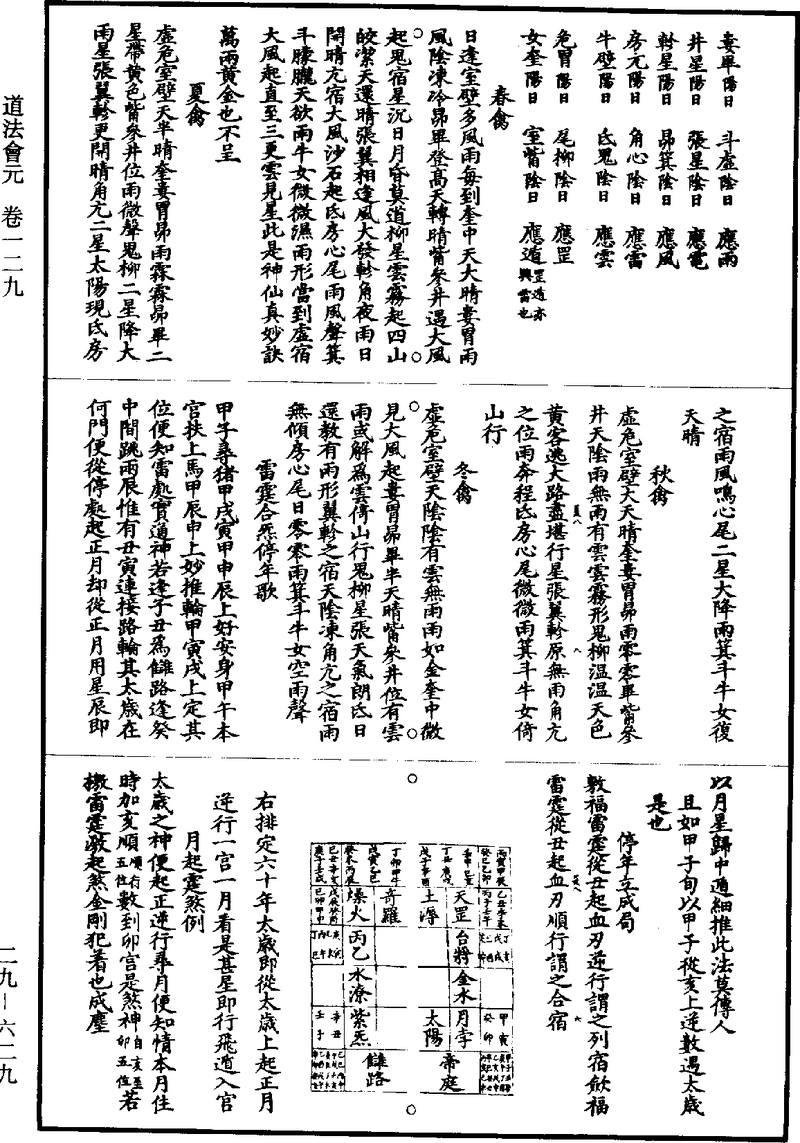 道法會元　卷一二九
二九—六二九
婁畢陽日　斗虛陰日　應雨
井星陽日　張星陰日　應電
軫星陽日　昴箕陰日　應風
房亢陽日　角心陰日　應雷
牛壁陽日　氐鬼陰日　應雲
危胃陽日　尾柳陰日　應罡
女奎陽日　室觜陰日　應遁罡遁亦興雷也
春禽
日逢室壁多風雨每到奎中天大晴婁胃雨
風陰凍冷昴畢登高天轉晴觜參井遇大風
起鬼宿星沉日月昏莫道柳星雲霧起四山
皎潔天還晴張翼相逢風大發軫角夜雨日
開晴亢宿大風沙石起氐房心尾雨風聲箕
斗朦朧天欲雨牛女微微濕雨形當到虛宿
大風起直至三更雲見星此是神仙真妙訣
萬兩黃金也不呈
夏禽
虛危室壁天半晴奎婁胃昴雨霖霖昴畢二
星帶黃色觜參井位雨微聲鬼柳二星降大
雨星張翼軫更開晴角亢二星太陽現氐房
之宿雨風鳴心尾二星大降雨箕斗牛女復
天晴
秋禽
虛危室壁大天晴奎婁胃昴雨零零畢觜參
井天陰雨無雨有雲雲霧形鬼柳溫溫天色
黃客逃大路盡堪行星張翼軫原無雨角亢
之位雨奔程氐房心尾微微雨箕斗牛女倚
山行
冬禽
虛危室壁天陰陰有雲無雨雨如金奎中微
見大風起婁胃昴畢半天晴觜參井位有雲
雨或解為雲傍山行鬼柳星張天氣朗氐日
還教有雨形翼軫之宿天陰凍角亢之宿雨
無傾房心尾日零零雨箕斗牛女空雨聲
雷霆合炁停年歌
甲子尋豬甲戌寅甲申辰上好安身甲午本
宮扶上馬甲辰申上妙推輪甲寅戌上定其
位便知雷處實通神若逢子丑為讎路逢癸
中間跳兩辰惟有丑寅連接路輪其太歲在
何門便從停處起正月却從正月用星辰即
以月星歸中遁細推此法莫傳人
且如甲子旬以甲子從亥上逆數遇太歲
是也
停年立成局
敷福雷霆從丑起血刃逆行謂之列宿歛福
雷霆從丑起血刃順行謂之合宿
奇羅
土潯
天罡
燥火
台將
丙乙
金水
水潦
月孛
紫炁
太陽
讎路
帝庭
右排定六十年太歲即從太歲上起正月
逆行一宮一月看是甚星即行飛遁入宮
月起霆煞例
太歲之神便起正逆行尋月便知情本月住
時加亥順順行五位數到卯宮是煞神自亥至卯五位若
擬雷霆激起煞金剛犯著也成塵